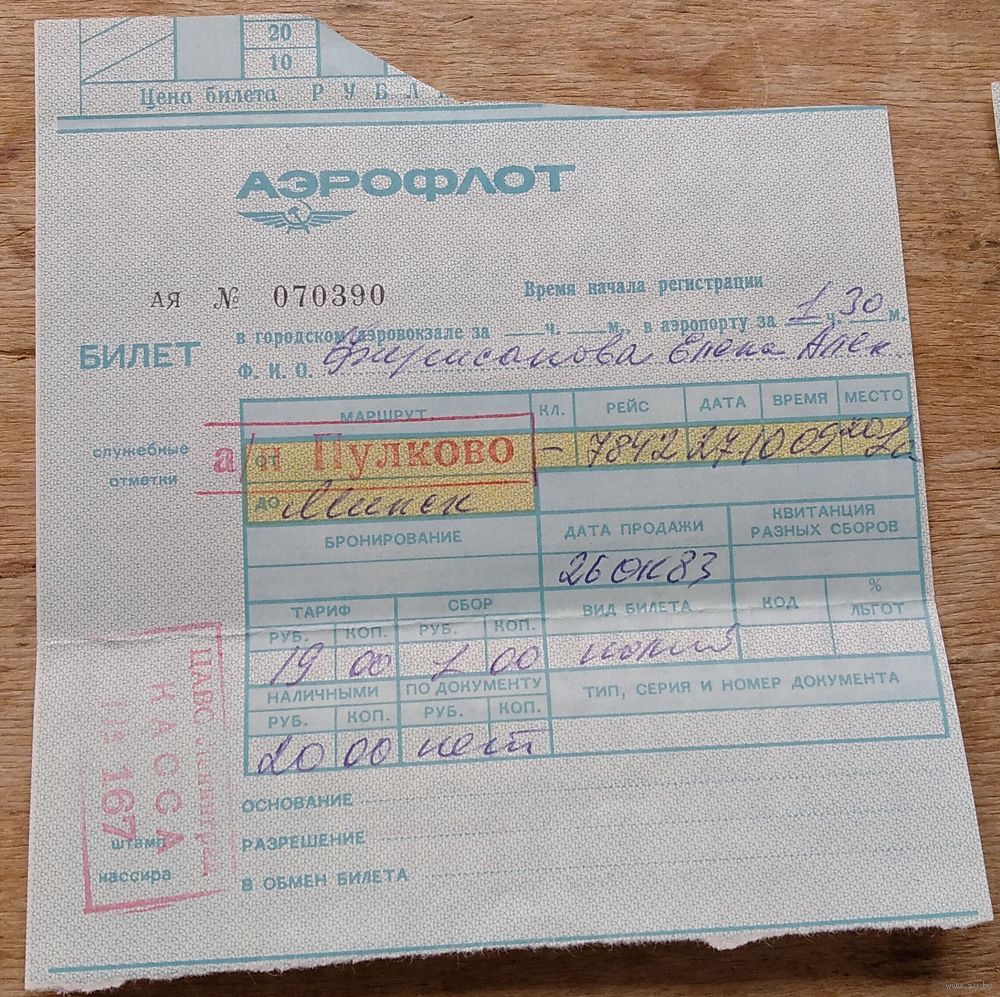 20
10
Цена билета РУБЛ
АЭРОФЛОТ
АЯ № 070390
Время начала регистрации
в городском аэровокзале за ч. м., в аэропорту за 1 ч. 30 м.
БИЛЕТ
Ф. И. О. Елена Алек.
служебные отметки
МАРШРУТ КЛ. РЕЙС ДАТА ВРЕМЯ МЕСТО
ОТ а/п Пулково – 7842 27/10
ДО Минск
БРОНИРОВАНИЕ ДАТА ПРОДАЖИ КВИТАНЦИЯ РАЗНЫХ СБОРОВ
26 ОК 83
ТАРИФ СБОР ВИД БИЛЕТА КОД % ЛЬГОТ
РУБ. КОП. РУБ. КОП.
19 00 1 00
НАЛИЧНЫМИ ПО ДОКУМЕНТУ ТИП, СЕРИЯ И НОМЕР ДОКУМЕНТА
РУБ. КОП. РУБ. КОП.
20 00 нет
ОСНОВАНИЕ
РАЗРЕШЕНИЕ
В ОБМЕН БИЛЕТА
штамп кассира
КАССА
167
www.ay.by